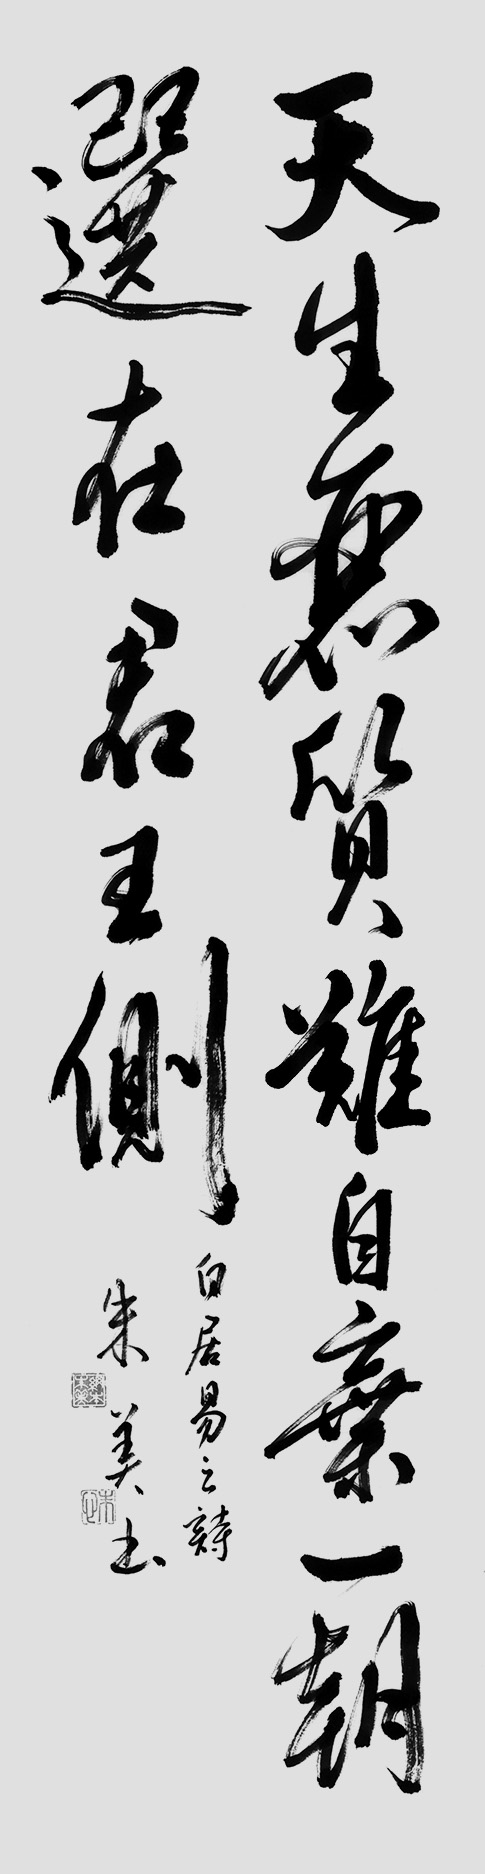 天生麗質難自棄一朝
選在君王側
白居易之詩
朱美书